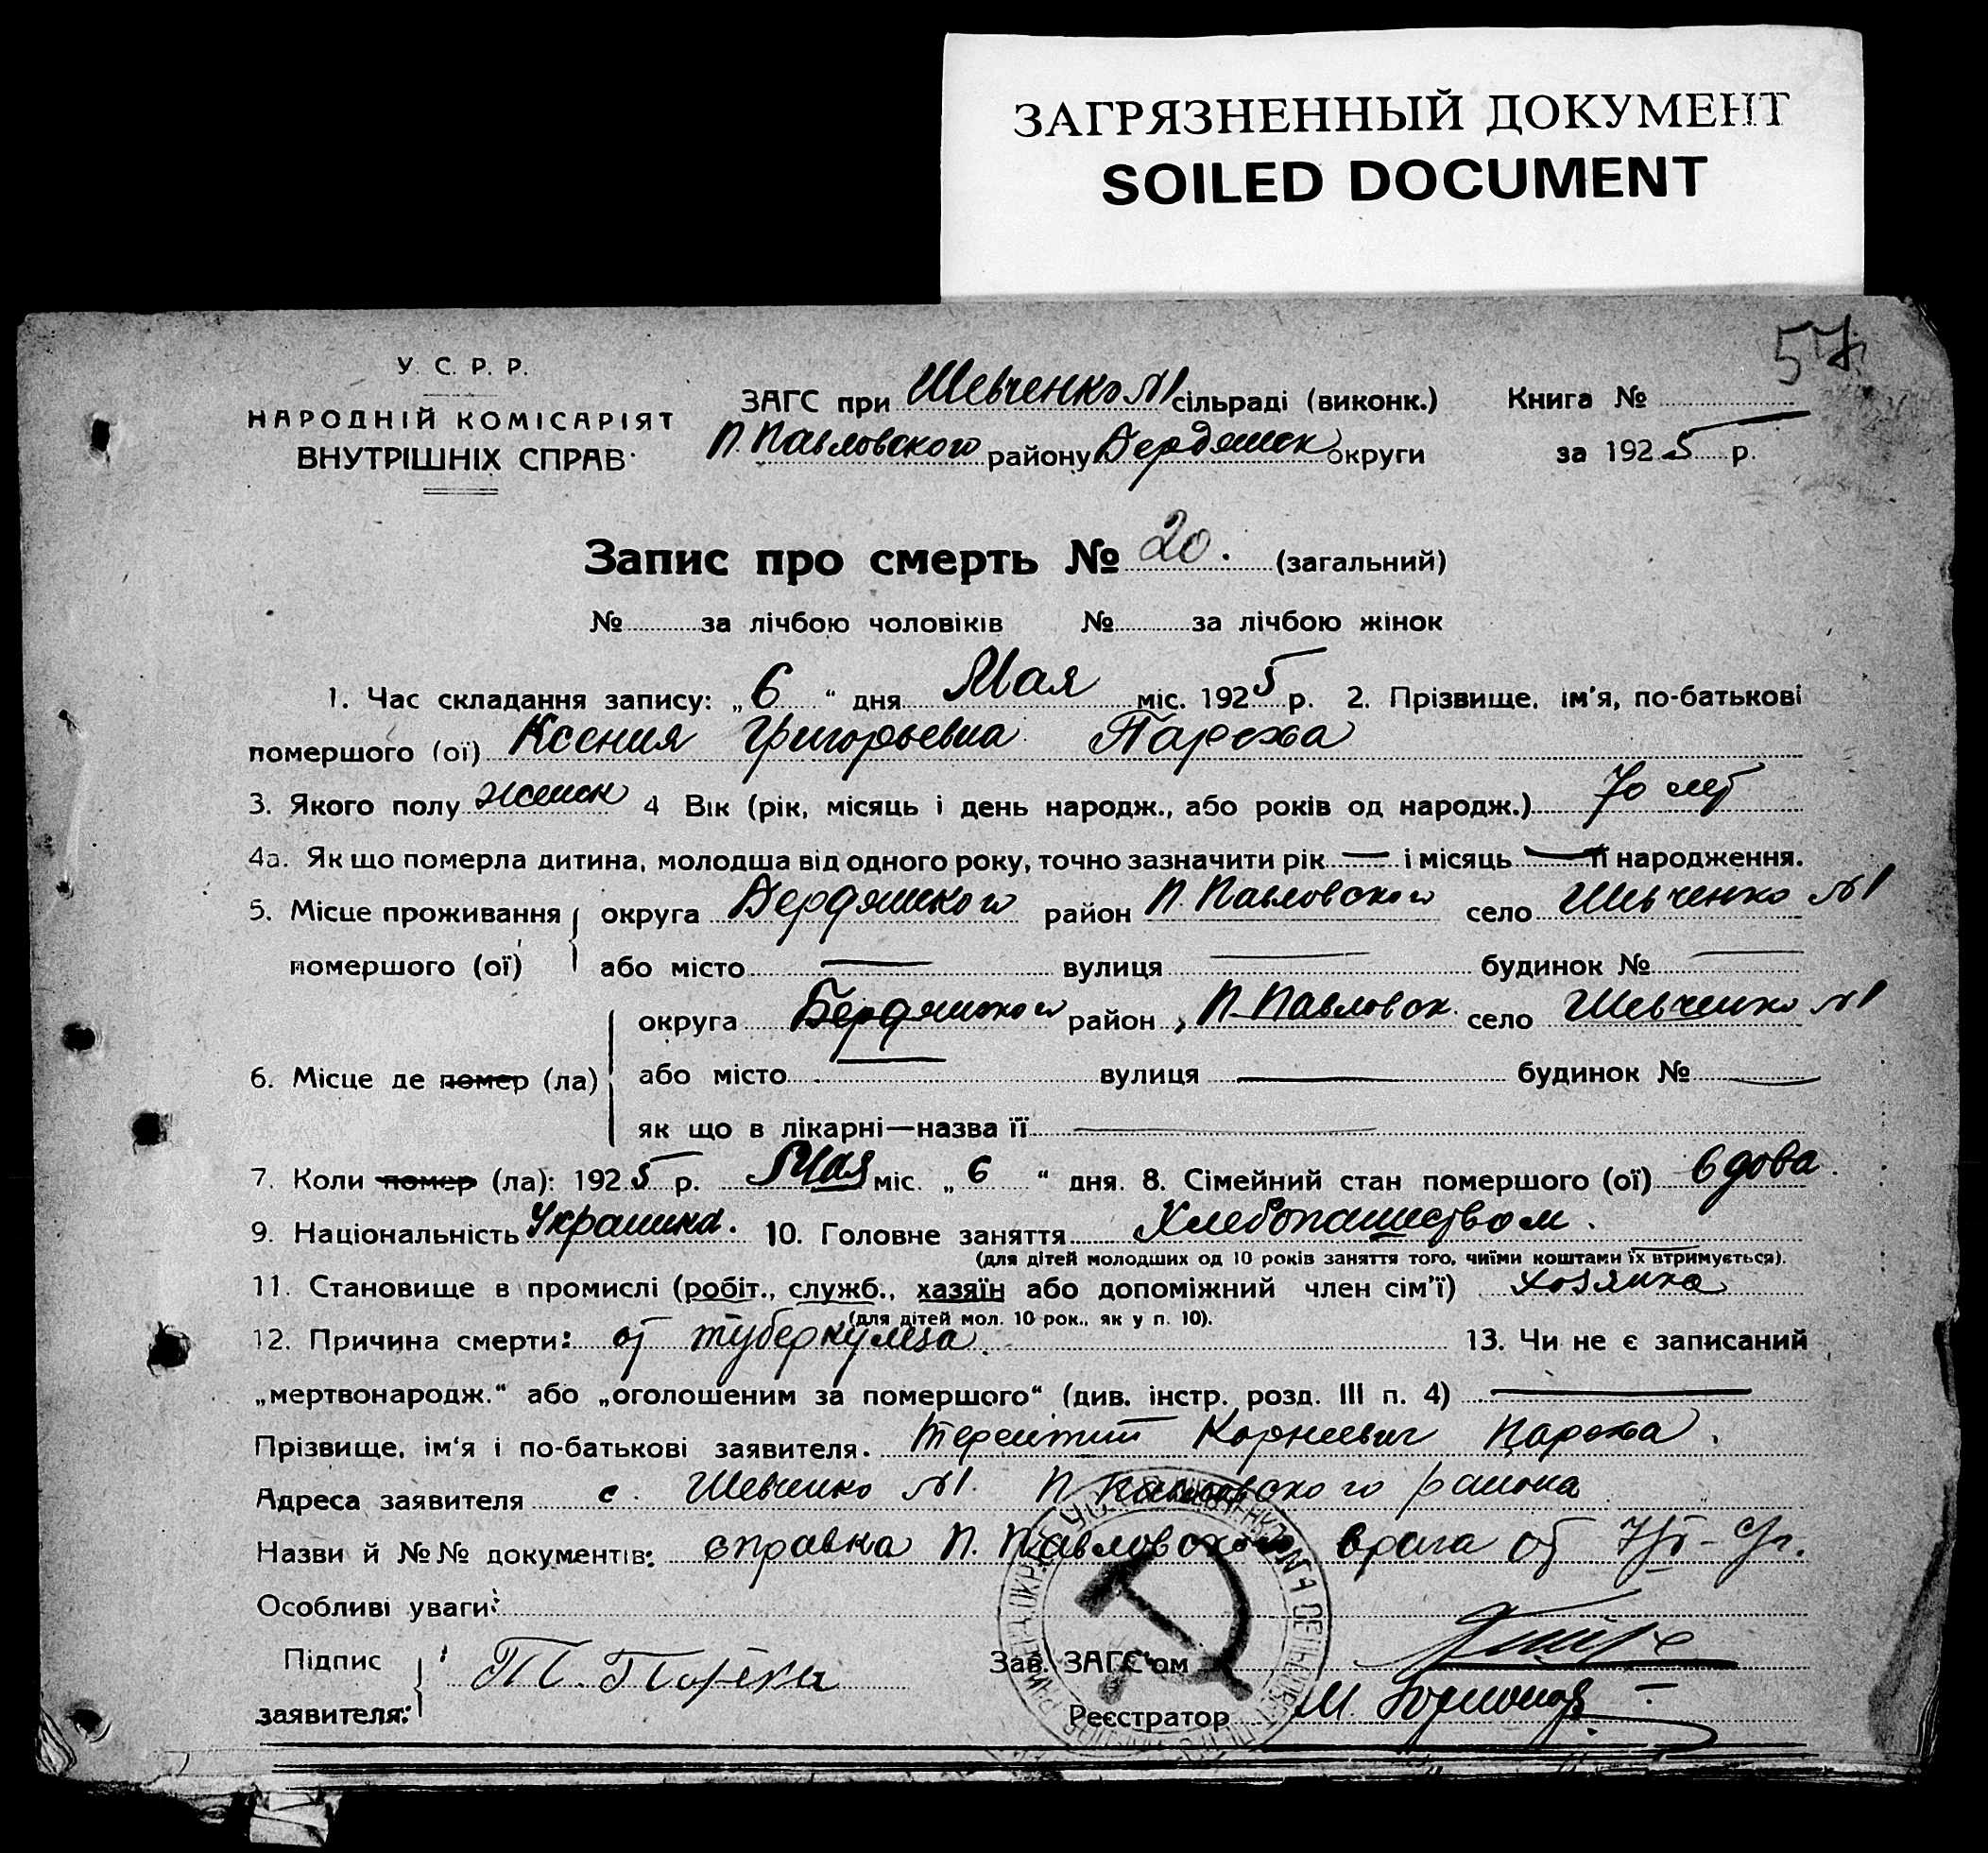 ЗАГРЯЗНЕННЫЙ ДОКУМЕНТ
SOILED DOCUMENT
У. С. Р. Р.
НАРОДНІЙ КОМІСАРІЯТ
ВНУТРІШНІХ СПРАВ
ЗАГС при Шевченко №1 сільраді (виконк.) Книга №
П. Павловского району Бердянск округи за 1925 р.
Запис про смерть № 20. (загальний)
№ за лічбою чоловіків № за лічбою жінок
1. Час складання запису: „6“ дня Мая міс. 1925 р. 2. Прізвище, ім'я, по-батькові
помершого (ої) Ксения Григорьевна
3. Якого полу женск 4 Вік (рік, місяць і день народж., або років од народж.) 70 лет
4а. Як що померла дитина, молодша від одного року, точно зазначити рік — і місяць — її народження.
5. Місце проживання помершого (ої) округа Бердянского район П. Павловского село Шевченко №1
або місто — вулиця — будинок № —
6. Місце де помер (ла) округа Бердянского район П. Павловск. село Шевченко №1
або місто — вулиця — будинок № —
як що в лікарні—назва її —
7. Коли помер (ла): 1925 р. Мая міс. „6“ дня. 8. Сімейний стан помершого (ої) вдова
9. Національність Украинка. 10. Головне заняття Хлебопашеством.
(для дітей молодших од 10 років заняття того, чиїми коштами їх втримується).
11. Становище в промислі (робіт., служб., хазяїн або допоміжний член сім'ї) хозяйка
(для дітей мол. 10 рок., як у п. 10).
12. Причина смерти: от туберкулеза. 13. Чи не є записаний
„мертвонародж.“ або „оголошеним за помершого“ (див. інстр. розд. III п. 4) —
Прізвище, ім'я і по-батькові заявителя. Терентий Корнеевич
Адреса заявителя с. Шевченко №1. П Павловского района
Назви й №№ документів: справка П. Павловского врача от
Особливі уваги:
Підпис заявителя: Т.
Зав. ЗАГС'ом
Реєстратор М.